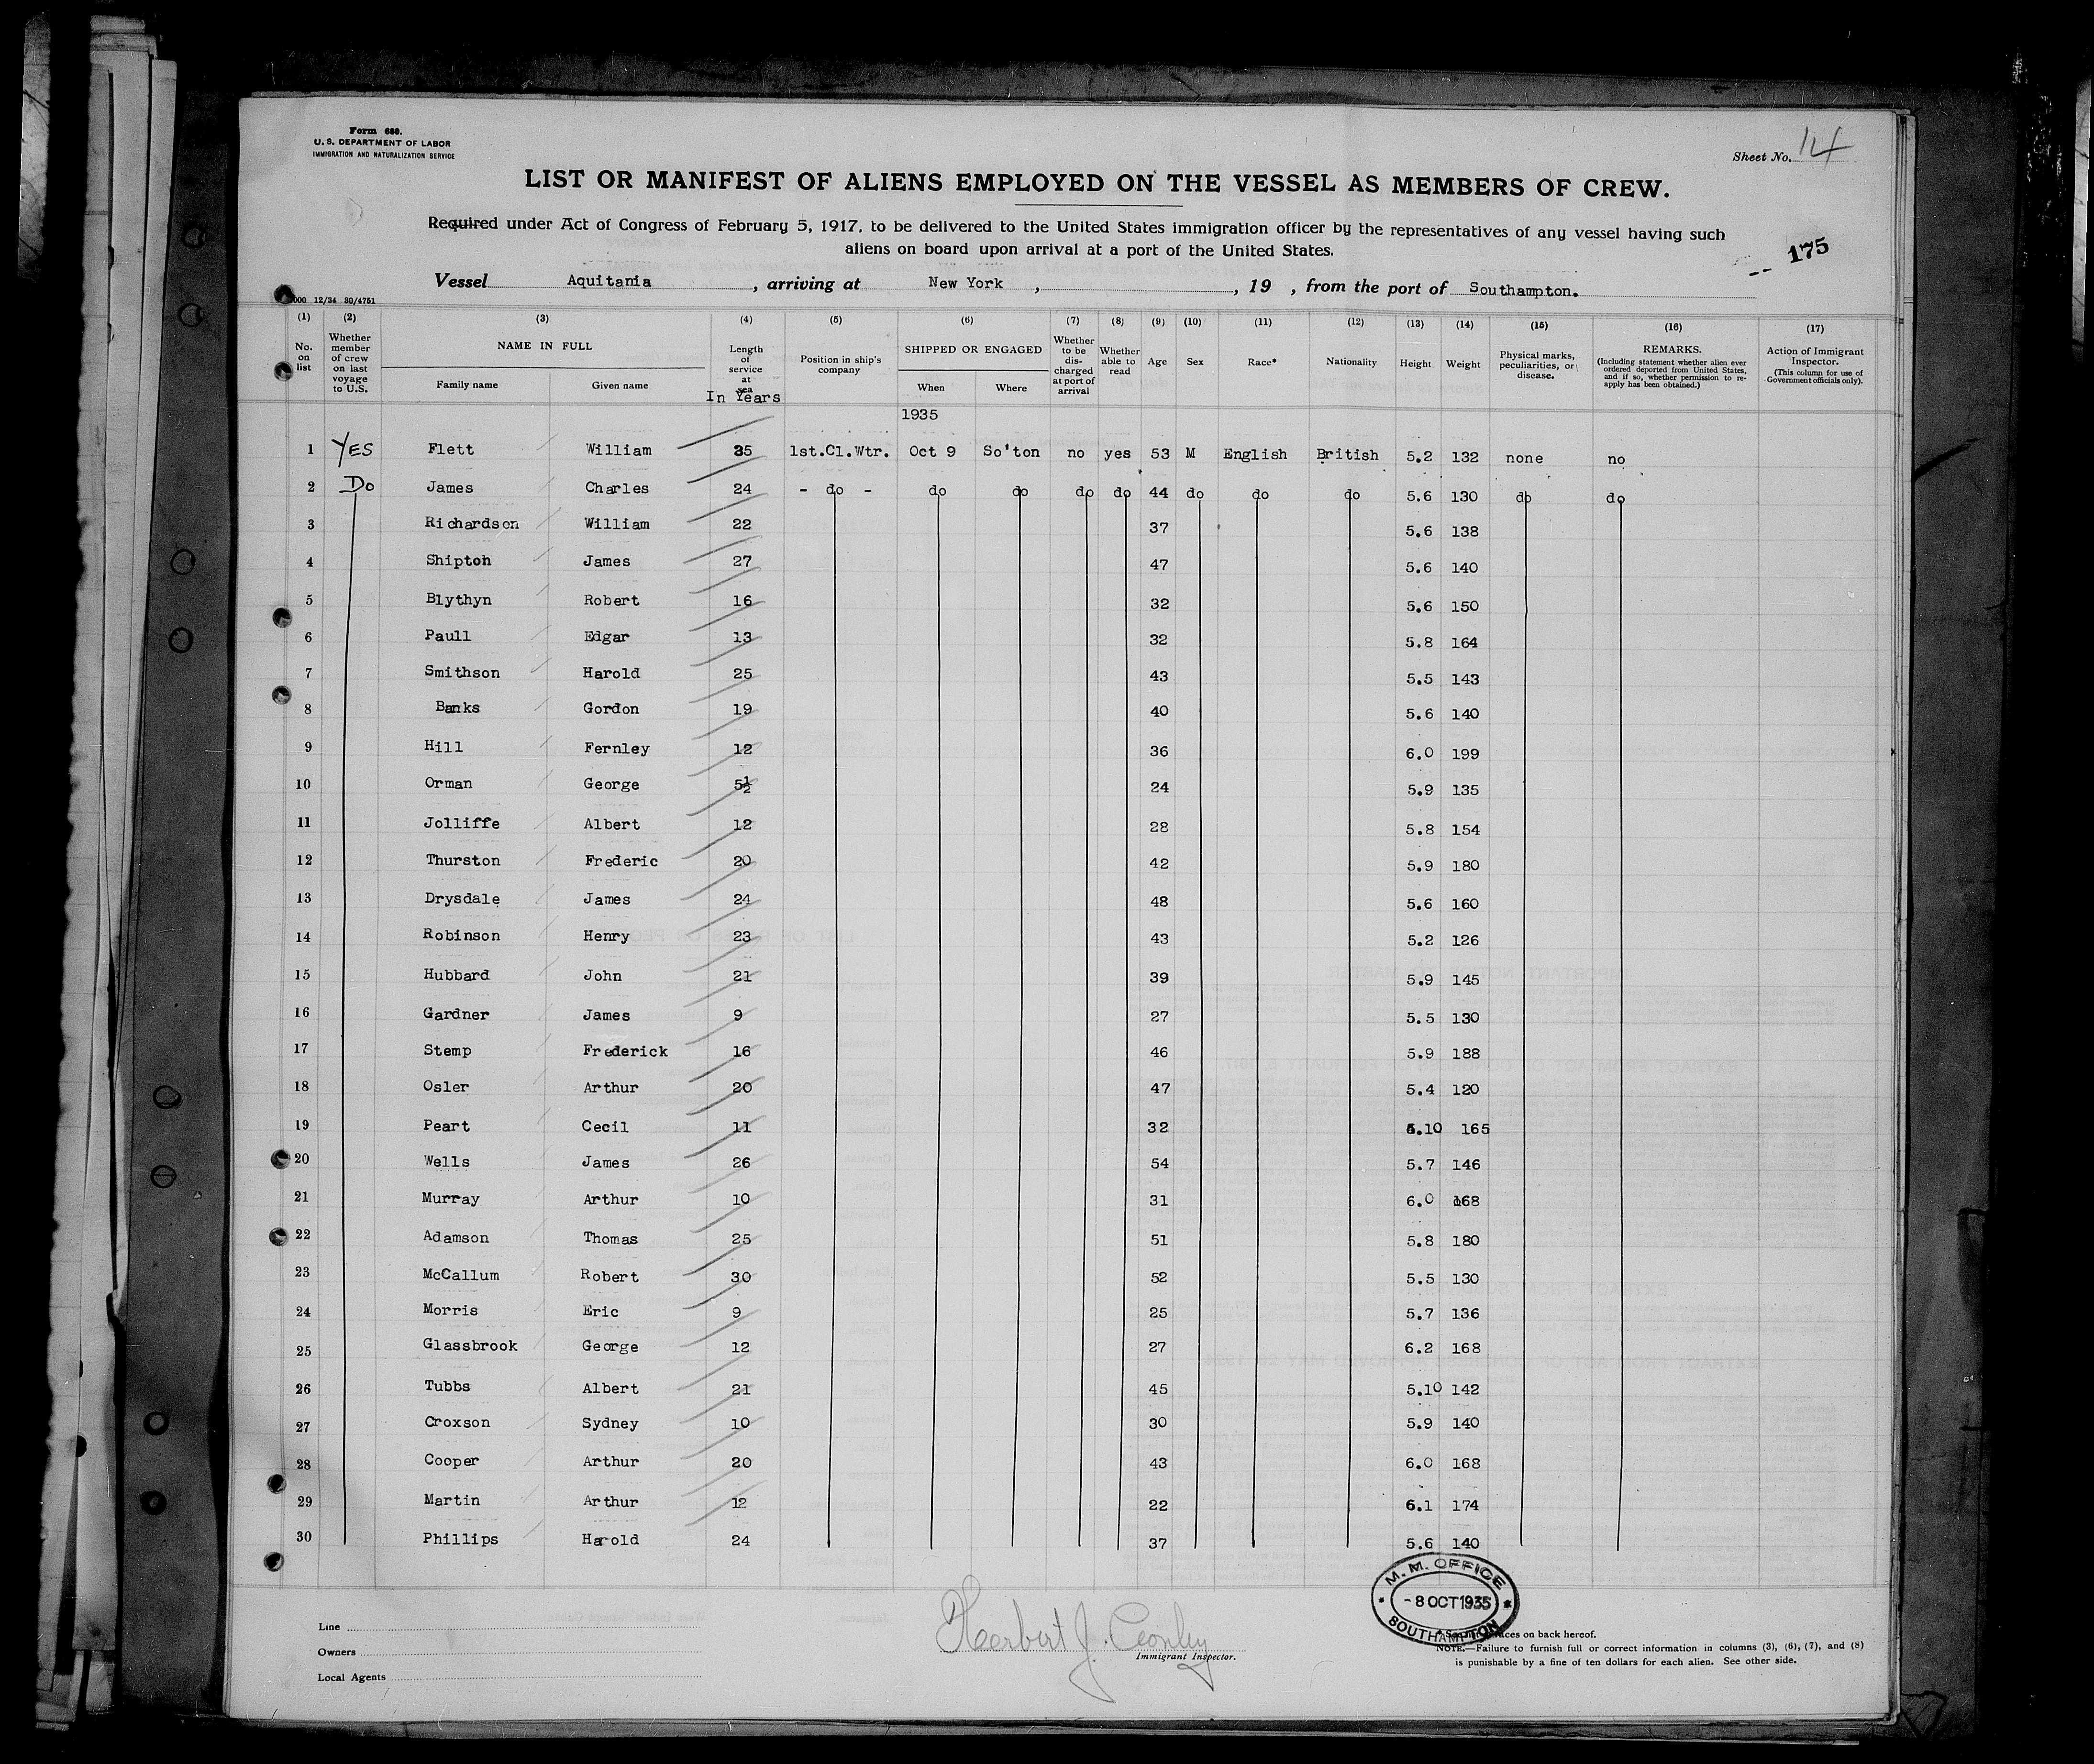 Form 689.
U. S. DEPARTMENT OF LABOR
IMMIGRATION AND NATURALIZATION SERVICE
Sheet No. 14
LIST OR MANIFEST OF ALIENS EMPLOYED ON THE VESSEL AS MEMBERS OF CREW.
Required under Act of Congress of February 5, 1917, to be delivered to the United States immigration officer by the representatives of any vessel having such
aliens on board upon arrival at a port of the United States.
175
Vessel Aquitania, arriving at New York, , 19 , from the port of Southampton.
000 12/34 30/4751
(1) (2) (3) (4) (5) (6) (7) (8) (9) (10) (11) (12) (13) (14) (15) (16) (17)
No. on list Whether member of crew on last voyage to U.S. NAME IN FULL Family name Given name Length of service at sea In Years Position in ship's company SHIPPED OR ENGAGED When Where Whether to be discharged at port of arrival Whether able to read Age Sex Race* Nationality Height Weight Physical marks, peculiarities, or disease. REMARKS. (Including statement whether alien ever ordered deported from United States, and if so, whether permission to re-apply has been obtained.) Action of Immigrant Inspector. (This column for use of Government officials only).
1935
1 YES Flett William 35 1st.Cl.Wtr. Oct 9 So'ton no yes 53 M English British 5.2 132 none no
2 Do James Charles 24 - do - do do do do 44 do do do 5.6 130 do do
3 Richardson William 22 37 5.6 138
4 Shipton James 27 47 5.6 140
5 Blythyn Robert 16 32 5.6 150
6 Paull Edgar 13 32 5.8 164
7 Smithson Harold 25 43 5.5 143
8 Banks Gordon 19 40 5.6 140
9 Hill Fernley 12 36 6.0 199
10 Orman George 5½ 24 5.9 135
11 Jolliffe Albert 12 28 5.8 154
12 Thurston Frederic 20 42 5.9 180
13 Drysdale James 24 48 5.6 160
14 Robinson Henry 23 43 5.2 126
15 Hubbard John 21 39 5.9 145
16 Gardner James 9 27 5.5 130
17 Stemp Frederick 16 46 5.9 188
18 Osler Arthur 20 47 5.4 120
19 Peart Cecil 11 32 5.10 165
20 Wells James 26 54 5.7 146
21 Murray Arthur 10 31 6.0 168
22 Adamson Thomas 25 51 5.8 180
23 McCallum Robert 30 52 5.5 130
24 Morris Eric 9 25 5.7 136
25 Glassbrook George 12 27 6.2 168
26 Tubbs Albert 21 45 5.10 142
27 Croxson Sydney 10 30 5.9 140
28 Cooper Arthur 20 43 6.0 168
29 Martin Arthur 12 22 6.1 174
30 Phillips Harold 24 37 5.6 140
M. M. OFFICE
- 8 OCT 1935
SOUTHAMPTON
Line
Owners
Local Agents
Herbert J. Conley
Immigrant Inspector.
races on back hereof.
NOTE.—Failure to furnish full or correct information in columns (3), (6), (7), and (8)
is punishable by a fine of ten dollars for each alien. See other side.